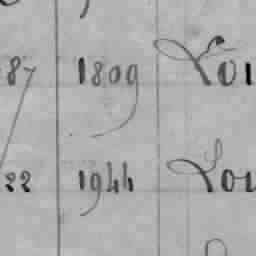 87 1809 Lou
22 1944 Lou